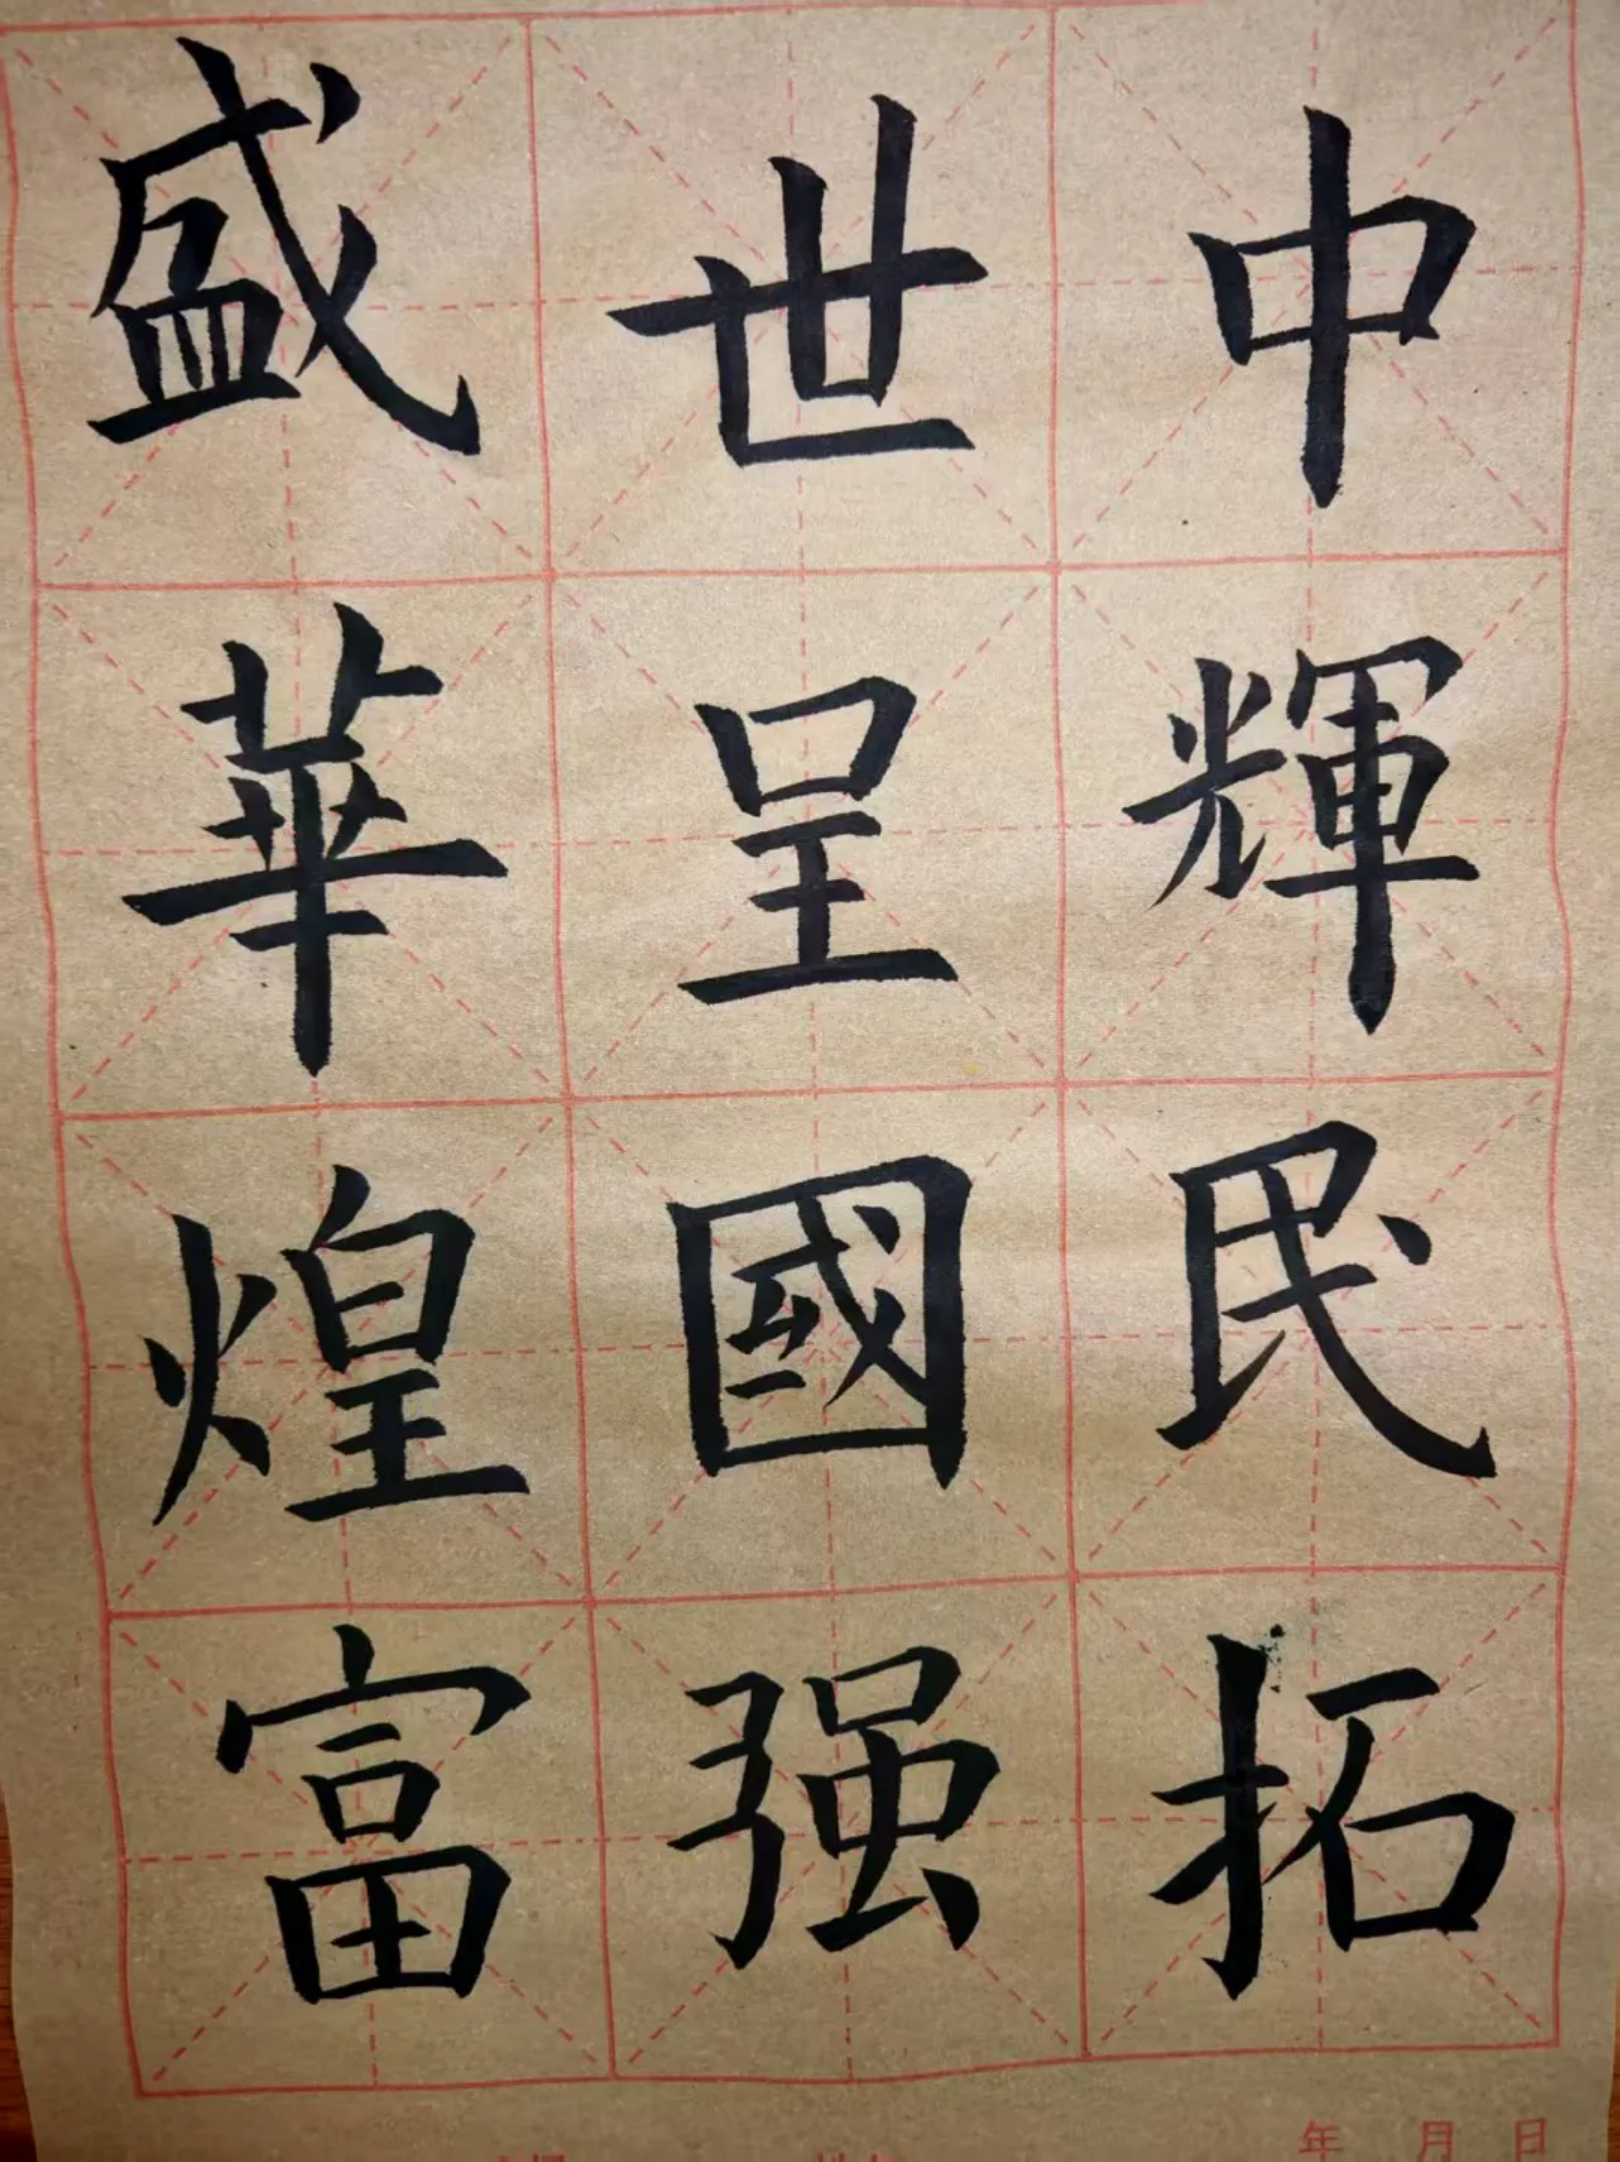 盛世中
華呈輝
煌國民
富强拓
年 月 日